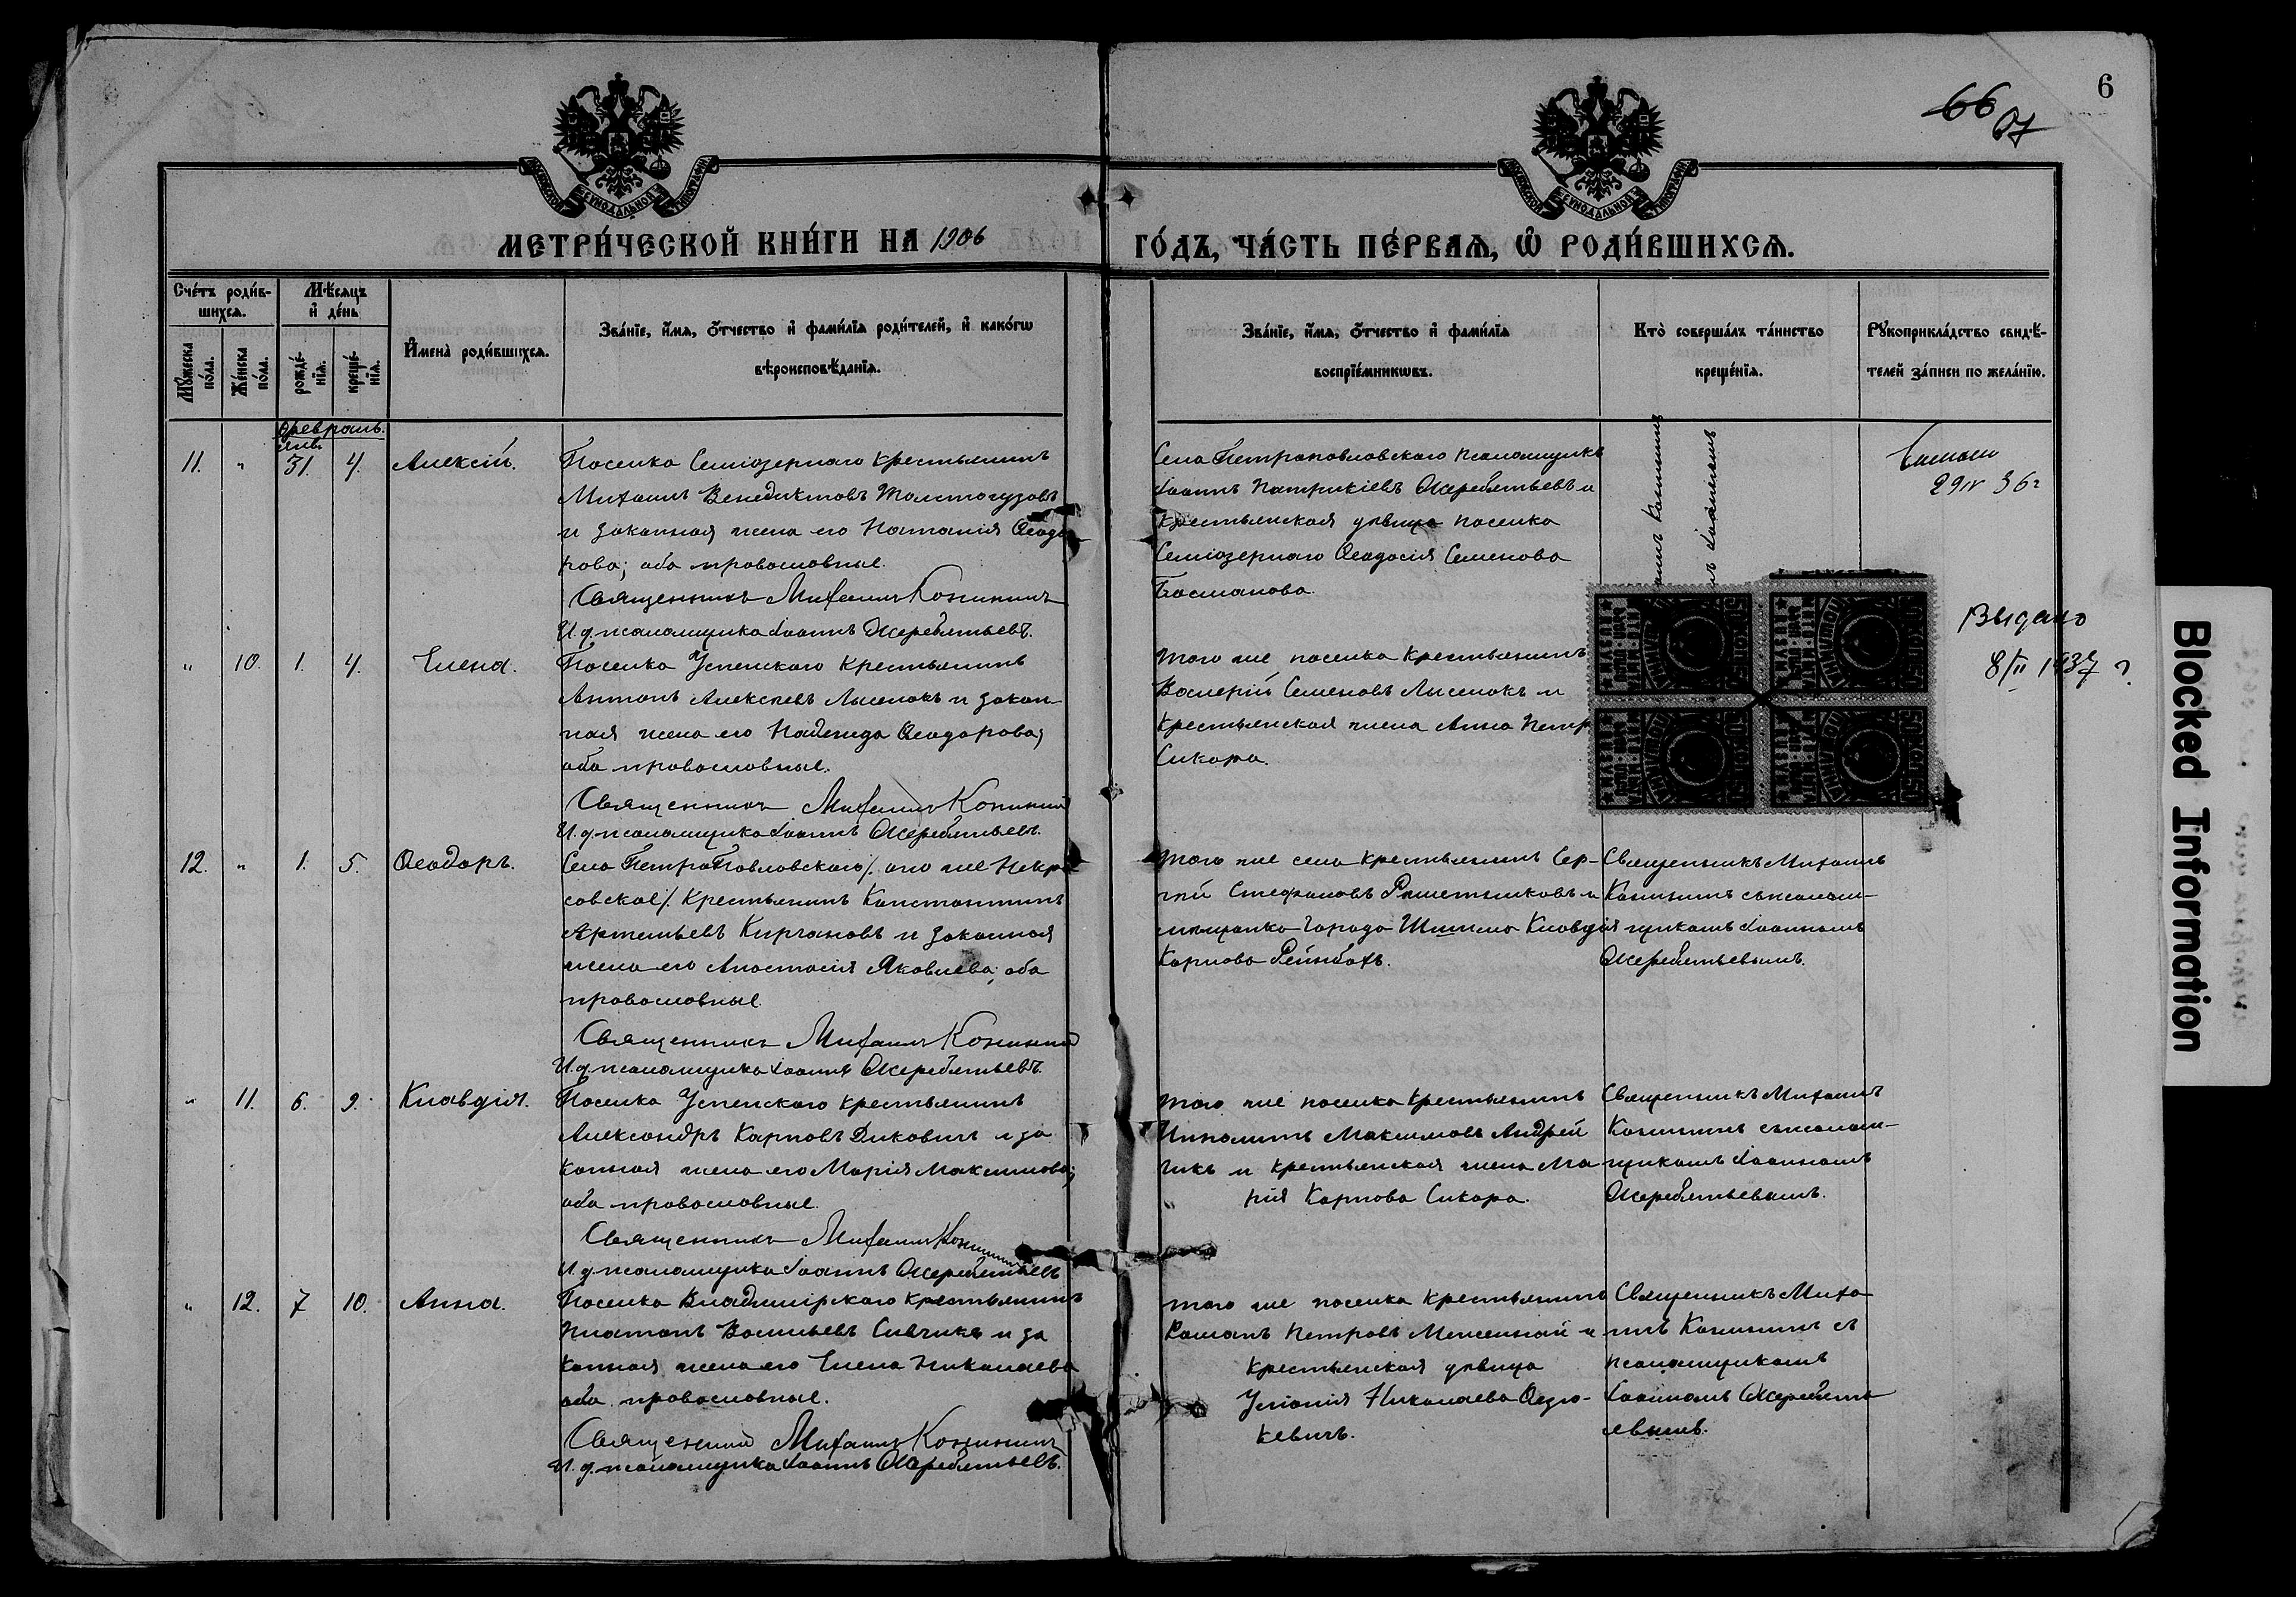 6
66
67
МЕТРИ́ЧЕСКОЙ КНИ́ГИ НА 1906
ГО́ДЪ, ЧА́СТЬ ПЕ́РВАЯ, Ѡ РОДИ́ВШИХСЯ.
Сче́тъ роди́в-
шихся.
Му́жеска по́ла.
Же́нска по́ла.
Мѣ́сяцъ
и де́нь
рожде́-
нїя.
креще́-
нїя.
Имена̀ роди́вшихся.
Зва́нїе, и́мя, о́тчество и фами́лїя роди́телей, и како́гѡ
вѣроисповѣ́данїя.
Зва́нїе, и́мя, о́тчество и фами́лїя
воспрїе́мникѡвъ.
Кто̀ соверша́лъ та́инство
креще́нїя.
Рꙋкоприкла́дство свидѣ́-
телей за́писи по жела́нїю.
Февраль.
Янв.
11. " 31. 4. Алексій.
Поселка Семіозернаго крестьянинъ
Михаилъ Венедиктовъ Толстогузовъ
и законная жена его Наталія Ѳеодо
рова; оба православные.
Священникъ Михаилъ Конининъ
И. д. псаломщика Іоаннъ Жеребятьевъ.
Села Петропавловскаго псаломщикъ
Іоаннъ Патрикіевъ Жеребятьевъ и
крестьянская дѣвица поселка
Семіозернаго Ѳеодосія Семенова
Басманова.
29 IV 36 г
" 10. 1. 4. Елена.
Поселка Успенскаго крестьянинъ
Антонъ Алексѣевъ Лысенокъ и закон-
ная жена его Надежда Ѳеодорова;
оба православные.
Священникъ Михаилъ Конинин
И. д. псаломщика Іоаннъ Жеребятьевъ.
того же поселка крестьянинъ
Валерій Семеновъ Лысенокъ и
крестьянская жена Анна Петр
Сикора.
Выдано
8/II 1937 г.
12. " 1. 5. Ѳеодоръ.
Села ПетроПавловскаго /. оно же Некра
совское/. крестьянинъ Константинъ
Артемьевъ Кирчановъ и законная
жена его Анастасія Яковлева; оба
православные.
Священникъ Михаилъ Конинин
И. д. псаломщика Іоаннъ Жеребятьевъ.
того же села крестьянинъ Сер-
гѣй Стефановъ Рѣшетниковъ и
мѣщанка города Клавдія
Карпова Рейнбахъ.
Священникъ Михаилъ
Конинин съ псалом-
щикомъ Іоанномъ
Жеребятьевымъ.
" 11. 6. 9. Клавдія.
Поселка Успенскаго крестьянинъ
Александръ Карповъ Диковичъ и за
конная жена его Марія Максимова;
оба православные.
Священникъ Михаилъ Конинин
И. д. псаломщика Іоаннъ Жеребятьевъ
того же поселка крестьянинъ
Ипполитъ Максимовъ Андрей
чикъ и крестьянская жена Ма
рія Карпова Сикора.
Священникъ Михаилъ
Конинин съ псалом-
щикомъ Іоанномъ
Жеребятьевымъ.
" 12. 7 10. Анна.
Поселка Владимірскаго крестьянинъ
Платонъ Васильевъ Сивчикъ и за
конная жена его Елена Николаева
оба православные.
Священникъ Михаилъ Конининъ
И. д. псаломщика Іоаннъ Жеребятьевъ.
того же поселка крестьянинъ
Романъ Петровъ и
крестьянская дѣвица
Николаева
кевичъ.
Священникъ Миха
илъ Конининъ съ
псаломщикомъ
Іоанномъ Жеребять
евымъ.
Blocked Information